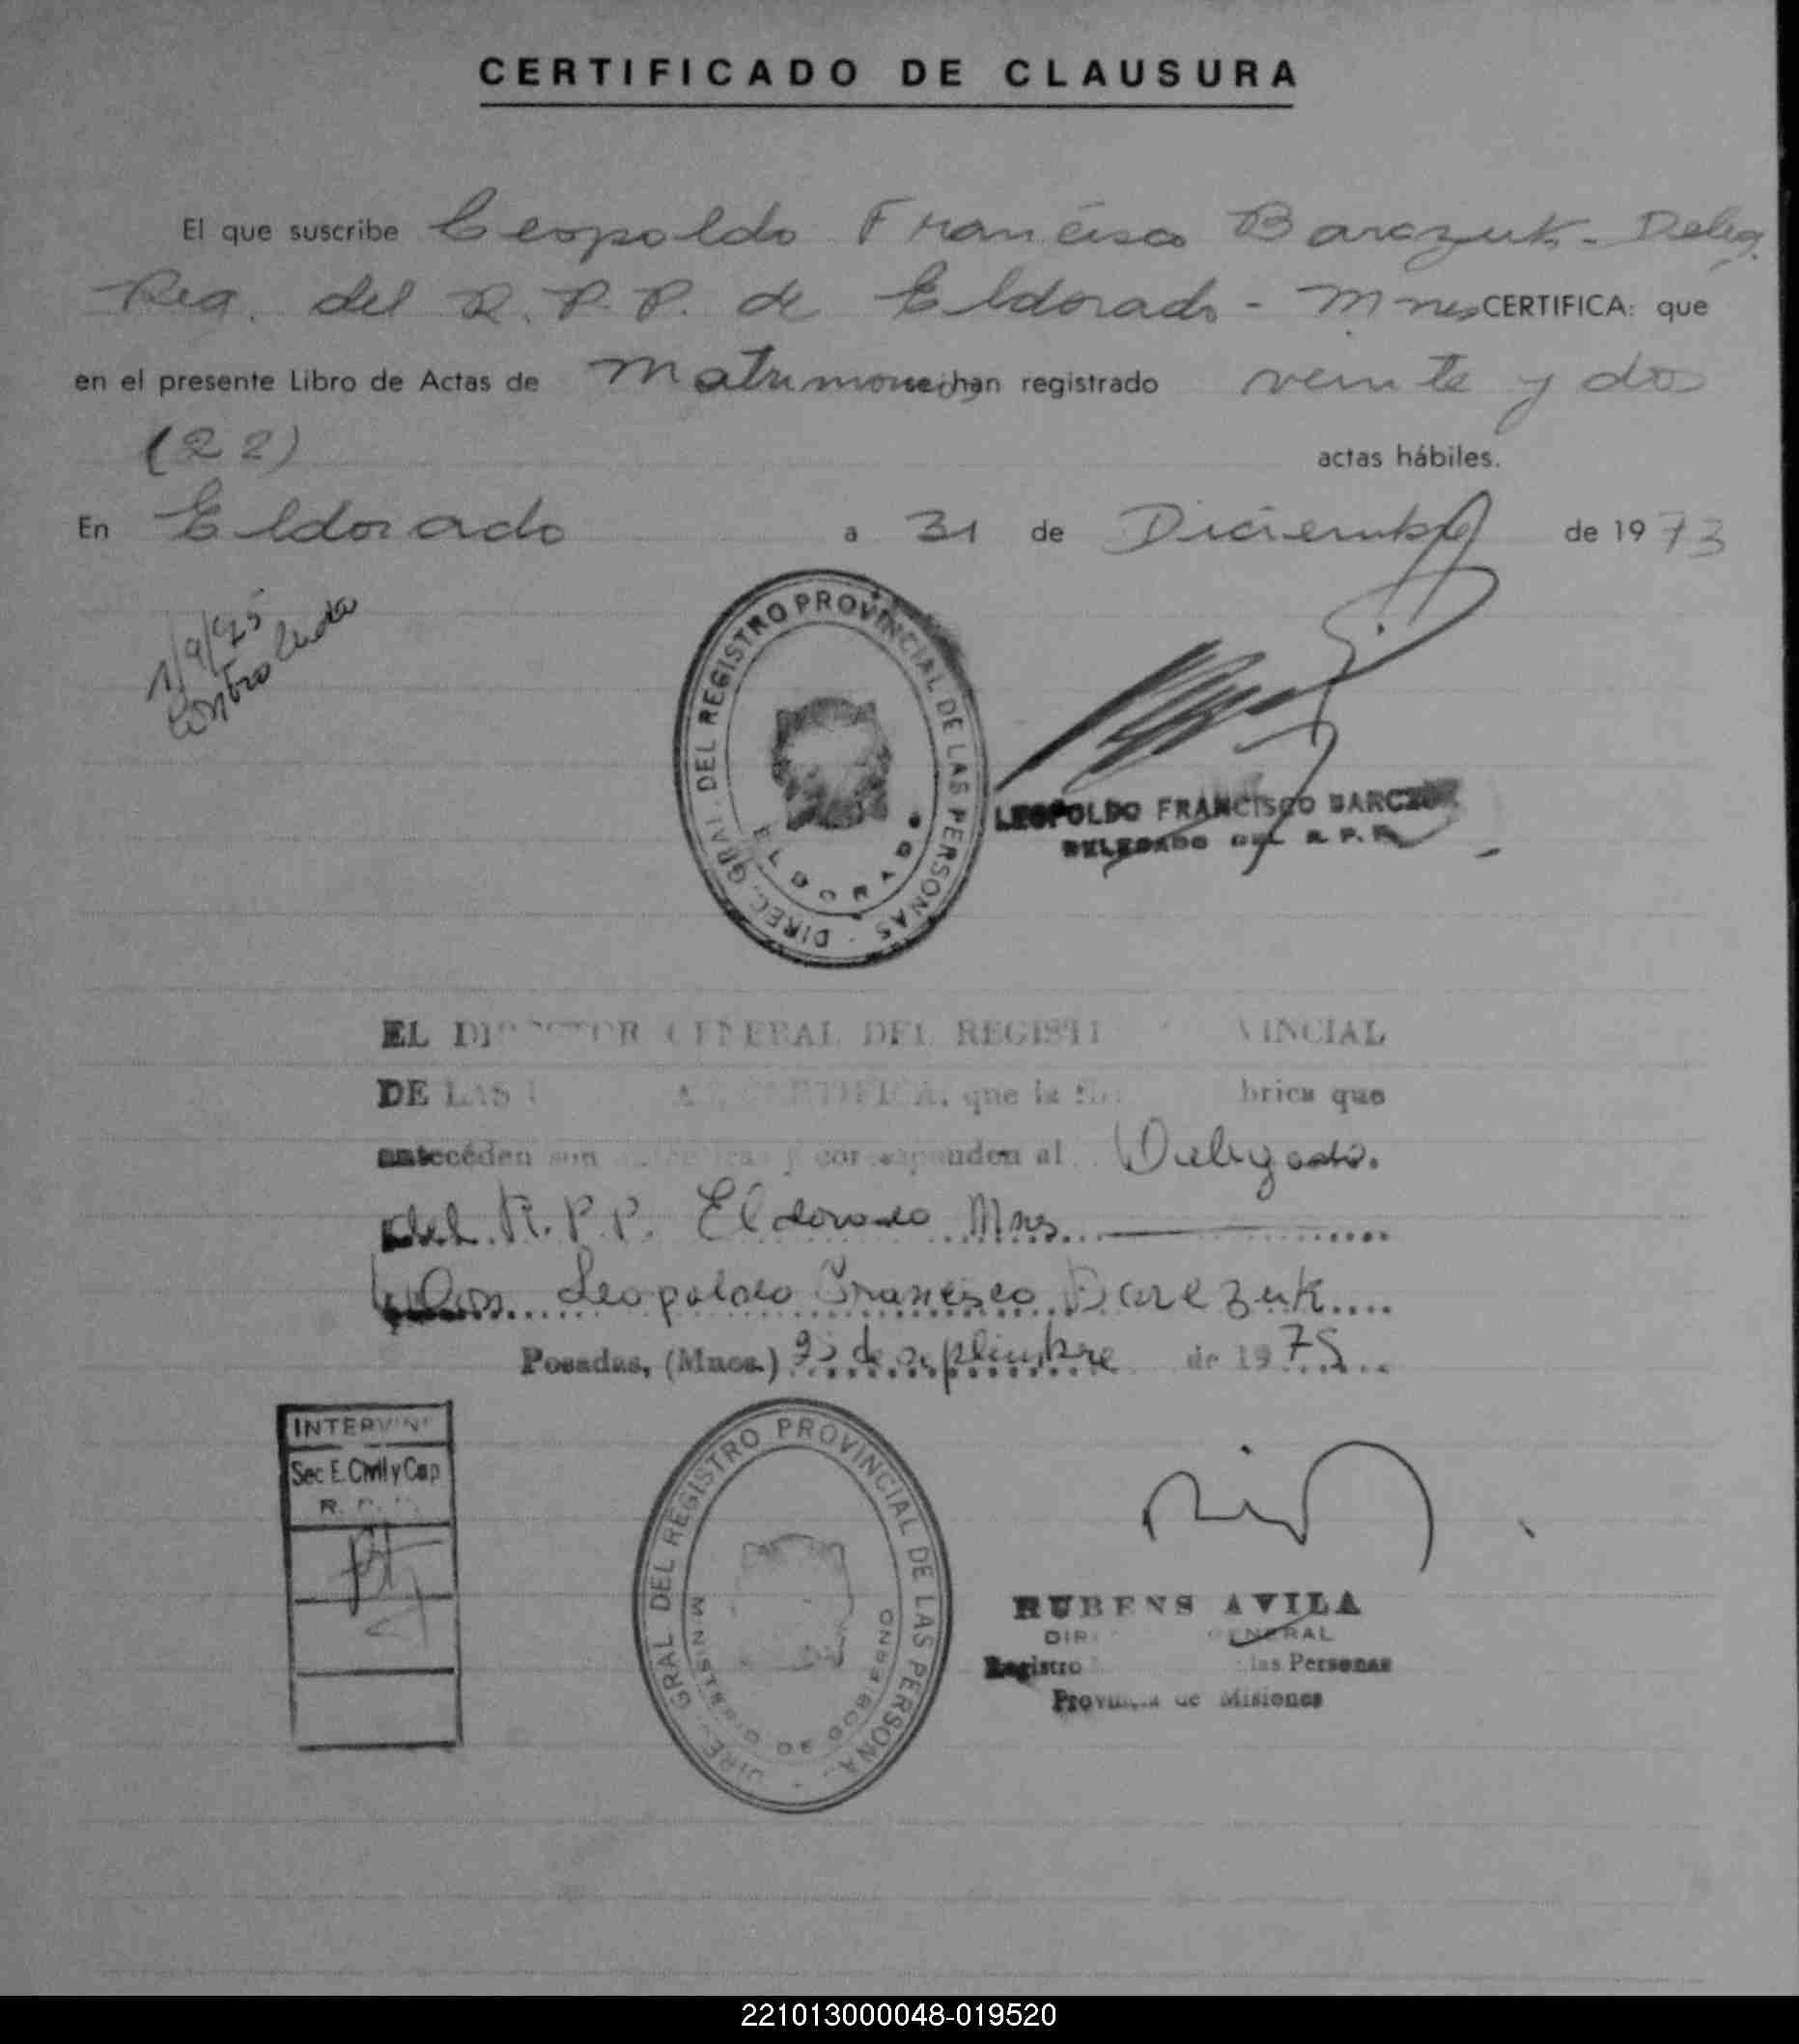 CERTIFICADO DE CLAUSURA
El que suscribe Leopoldo Francisco Barczuk - Deleg.
Reg. del R. P. P. de Eldorado - Mnes CERTIFICA: que
en el presente Libro de Actas de Matrimonio se han registrado veinte y dos
(22) actas hábiles.
En Eldorado a 31 de Diciembre de 1973
1/9/75
Controlada
DIREC. GRAL. DEL REGISTRO PROVINCIAL DE LAS PERSONAS
ELDORADO
LEOPOLDO FRANCISCO BARCZUK
DELEGADO DEL R. P. P.
EL DIRECTOR GENERAL DEL REGISTRO PROVINCIAL
DE LAS CERTIFICA, que la brica que
anteceden son y corresponden al Delegado
del R.P.P. Eldorado Mnes
Don Leopoldo Francisco Barczuk
Posadas, (Mnes.) de septiembre de 1975
INTERVINO
Sec E. Civil y Cap
R. P.
DIREC. GRAL DEL REGISTRO PROVINCIAL DE LAS PERSONAS
MINISTERIO DE GOBIERNO
RUBENS AVILA
DIR GENERAL
Registro las Personas
Provincia de Misiones
221013000048-019520